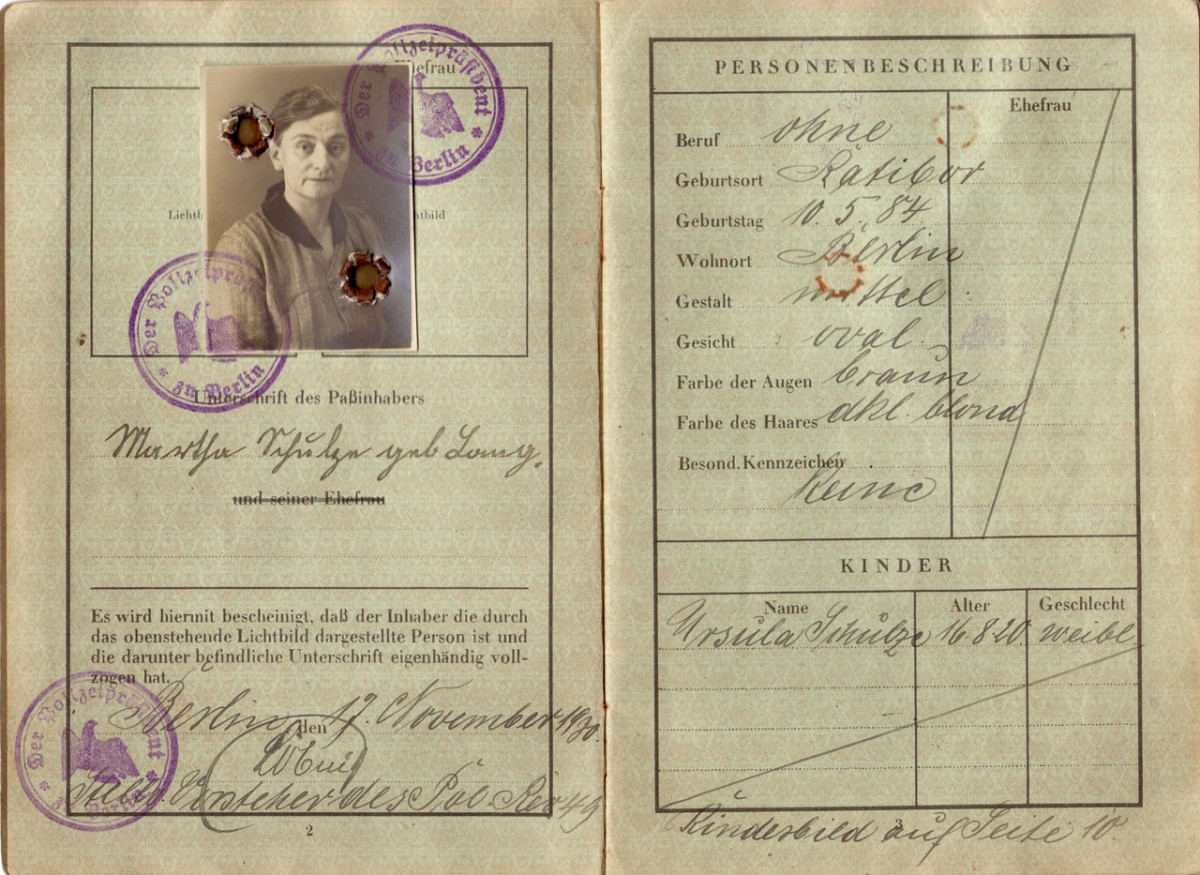 Ehefrau
Der Polizeipräsident
zu Berlin
Der Polizeipräsident
zu Berlin
Unterschrift des Paßinhabers
Martha Schulze geb Lang.
und seiner Ehefrau
Es wird hiermit bescheinigt, daß der Inhaber die durch
das obenstehende Lichtbild dargestellte Person ist und
die darunter befindliche Unterschrift eigenhändig voll-
zogen hat.
Berlin, den 17. November 1930.
Der Polizeipräsident
zu Berlin
Vorsteher des Pol Rev 49
2
PERSONENBESCHREIBUNG
Ehefrau
Beruf ohne
Geburtsort Ratibor
Geburtstag 10. 5. 84.
Wohnort Berlin
Gestalt mittel
Gesicht oval
Farbe der Augen braun
Farbe des Haares dkl. blond
Besond. Kennzeichen
Keine
KINDER
Name Alter Geschlecht
Ursula Schulze 16.8.20. weibl.
3
Kindesbild auf Seite 10.